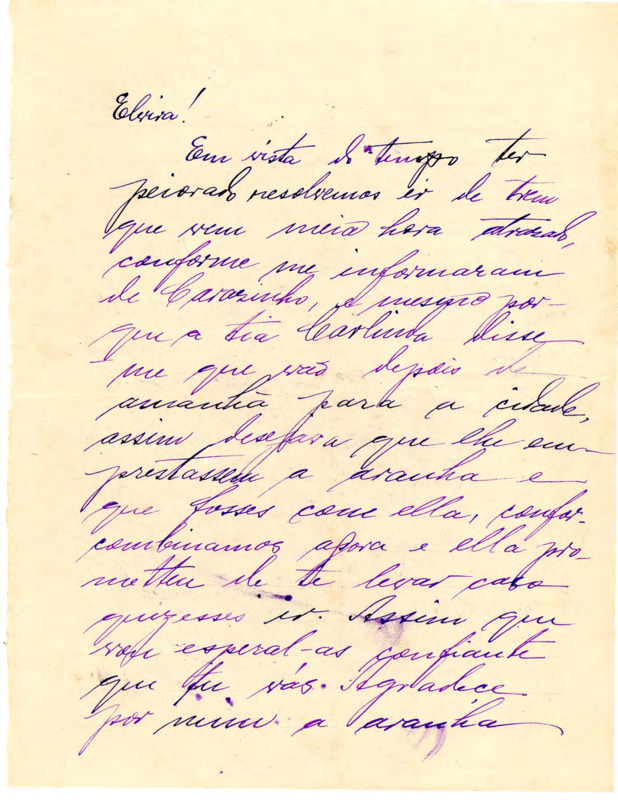 Elvira!
Em vista do tempo ter
peiorado resolvemos ir de trem
que vem meia hora atrazado,
conforme me informaram
de Carazinho, e mesmo por-
que a tia Carlinda disse
me que vão depois de
amanhã para a cidade,
assim desejara que lhe em-
prestassem a aranha e
que fosses com ella, confor-
combinamos agora e ella pro-
metteu de te levar caso
quizesses ir. Assim que
vou esperal-as confiante
que tu vás. Agradece
por mim a aranha